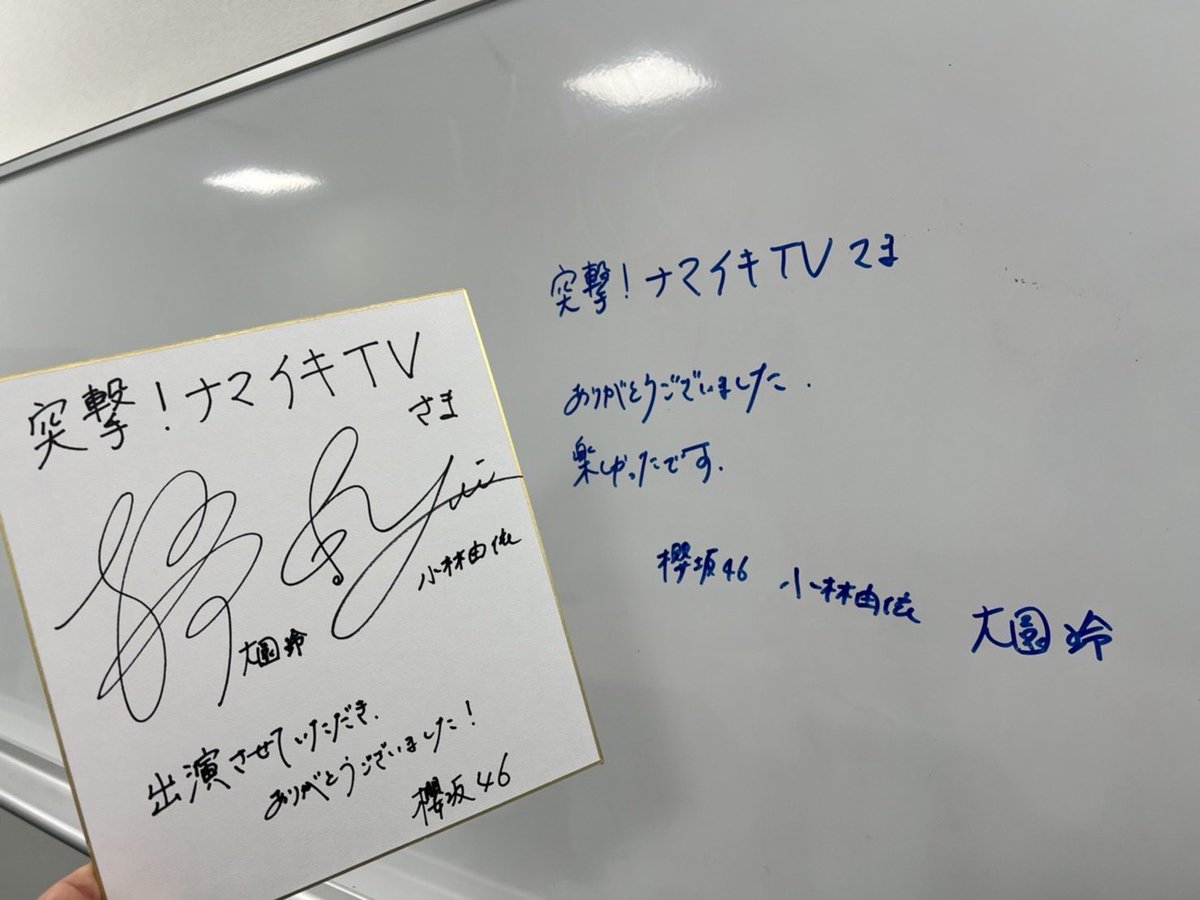 突撃!ナマイキTV
さま
yui
小林由依
大園玲
出演させていただき、
ありがとうございました!
櫻坂46
突撃!ナマイキTVさま
ありがとうございました.
楽しかったです.
櫻坂46 小林由依 大園玲